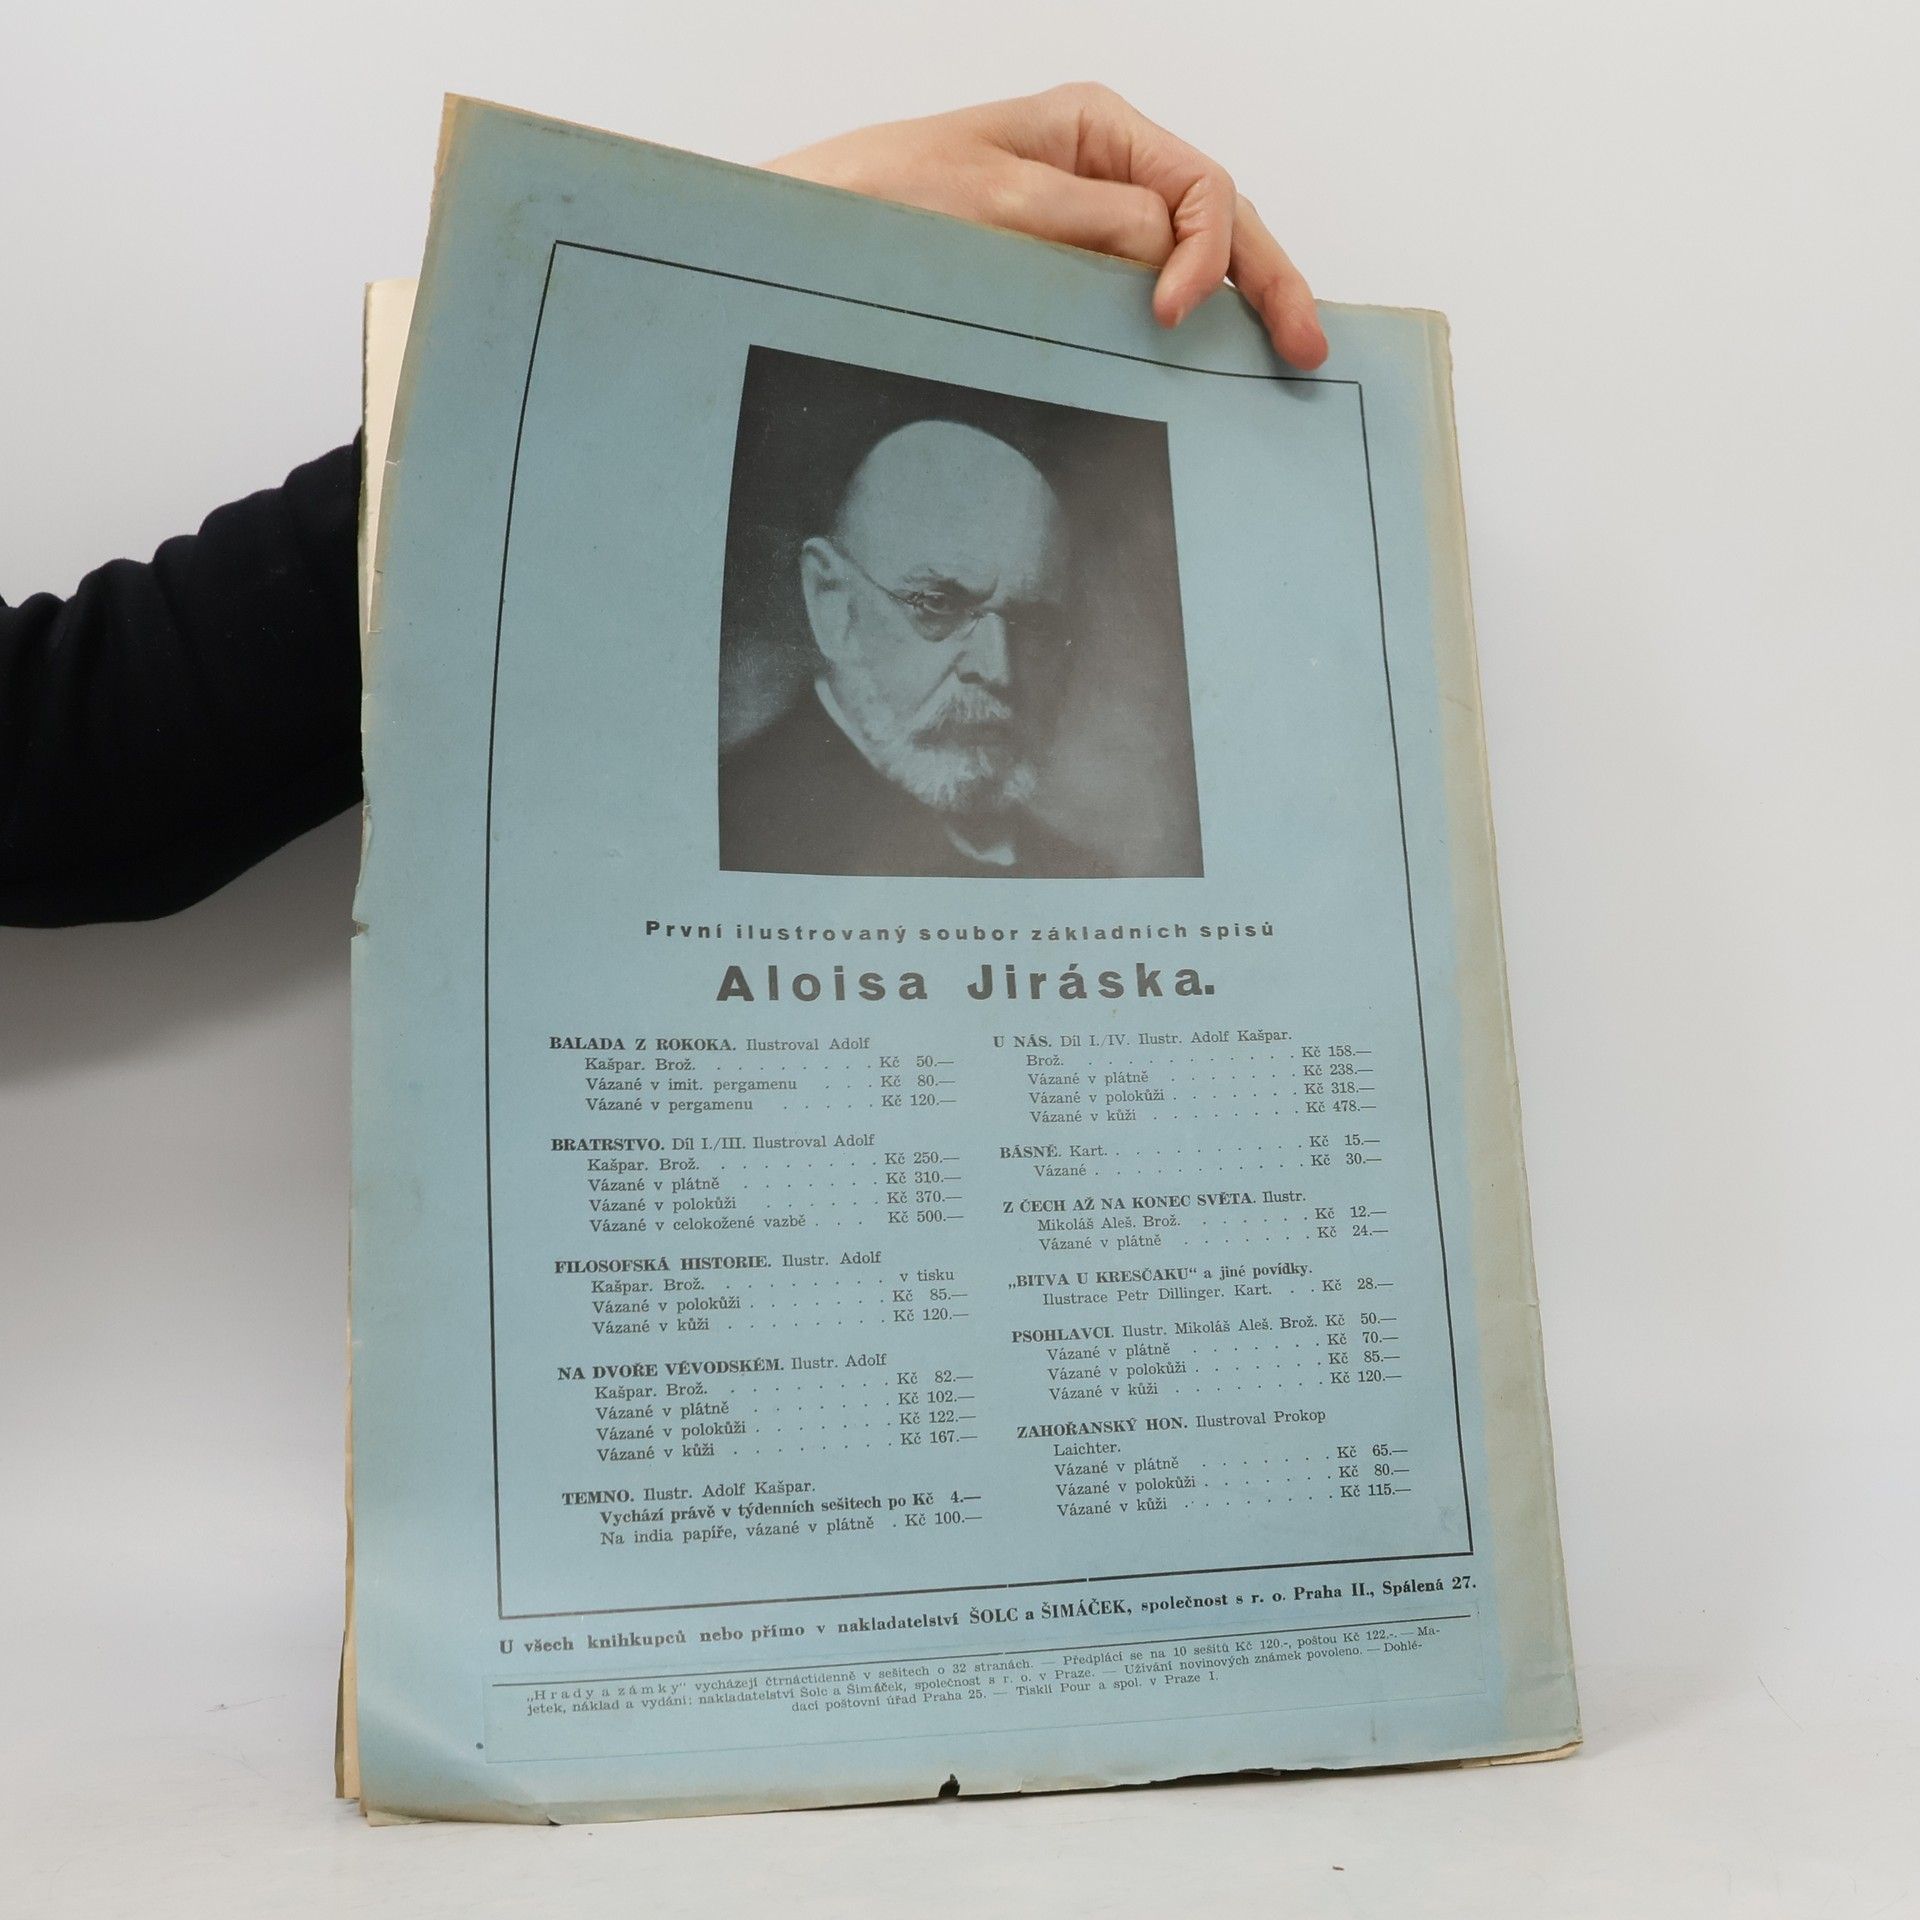 První ilustrovaný soubor základních spisů
Aloisa Jiráska.
BALADA Z ROKOKA. Ilustroval Adolf
Kašpar. Brož. . . . . . . . . Kč 50.—
Vázané v imit. pergamenu . . . Kč 80.—
Vázané v pergamenu . . . . . Kč 120.—
BRATRSTVO. Díl I./III. Ilustroval Adolf
Kašpar. Brož. . . . . . . . . Kč 250.—
Vázané v plátně . . . . . . . Kč 310.—
Vázané v polokůži . . . . . . Kč 370.—
Vázané v celokožené vazbě . . . Kč 500.—
FILOSOFSKÁ HISTORIE. Ilustr. Adolf
Kašpar. Brož. . . . . . . . . v tisku
Vázané v polokůži . . . . . . . Kč 85.—
Vázané v kůži . . . . . . . . Kč 120.—
NA DVOŘE VÉVODSKÉM. Ilustr. Adolf
Kašpar. Brož. . . . . . . . . Kč 82.—
Vázané v plátně . . . . . . . Kč 102.—
Vázané v polokůži . . . . . . . Kč 122.—
Vázané v kůži . . . . . . . . Kč 167.—
TEMNO. Ilustr. Adolf Kašpar.
Vychází právě v týdenních sešitech po Kč 4.—
Na india papíře, vázané v plátně . Kč 100.—
U NÁS. Díl I./IV. Ilustr. Adolf Kašpar.
Brož. . . . . . . . . . . . Kč 158.—
Vázané v plátně . . . . . . . Kč 238.—
Vázané v polokůži . . . . . . . Kč 318.—
Vázané v kůži . . . . . . . . Kč 478.—
BÁSNĚ. Kart. . . . . . . . . . . Kč 15.—
Vázané . . . . . . . . . . . Kč 30.—
Z ČECH AŽ NA KONEC SVĚTA. Ilustr.
Mikoláš Aleš. Brož. . . . . . . Kč 12.—
Vázané v plátně . . . . . . . Kč 24.—
„BITVA U KRESČAKU“ a jiné povídky.
Ilustrace Petr Dillinger. Kart. . . Kč 28.—
PSOHLAVCI. Ilustr. Mikoláš Aleš. Brož. Kč 50.—
Vázané v plátně . . . . . . . Kč 70.—
Vázané v polokůži . . . . . . . Kč 85.—
Vázané v kůži . . . . . . . . Kč 120.—
ZAHOŘANSKÝ HON. Ilustroval Prokop
Laichter.
Vázané v plátně . . . . . . . Kč 65.—
Vázané v polokůži . . . . . . . Kč 80.—
Vázané v kůži . . . . . . . . Kč 115.—
U všech knihkupců nebo přímo v nakladatelství ŠOLC a ŠIMÁČEK, společnost s r. o. Praha II., Spálená 27.
„Hrady a zámky“ vycházejí čtrnáctidenně v sešitech o 32 stranách. — Předplácí se na 10 sešitů Kč 120.-, poštou Kč 122.-. — Ma-
jetek, náklad a vydání: nakladatelství Šolc a Šimáček, společnost s r. o. v Praze. — Užívání novinových známek povoleno. — Dohlé-
dací poštovní úřad Praha 25. — Tiskli Pour a spol. v Praze I.